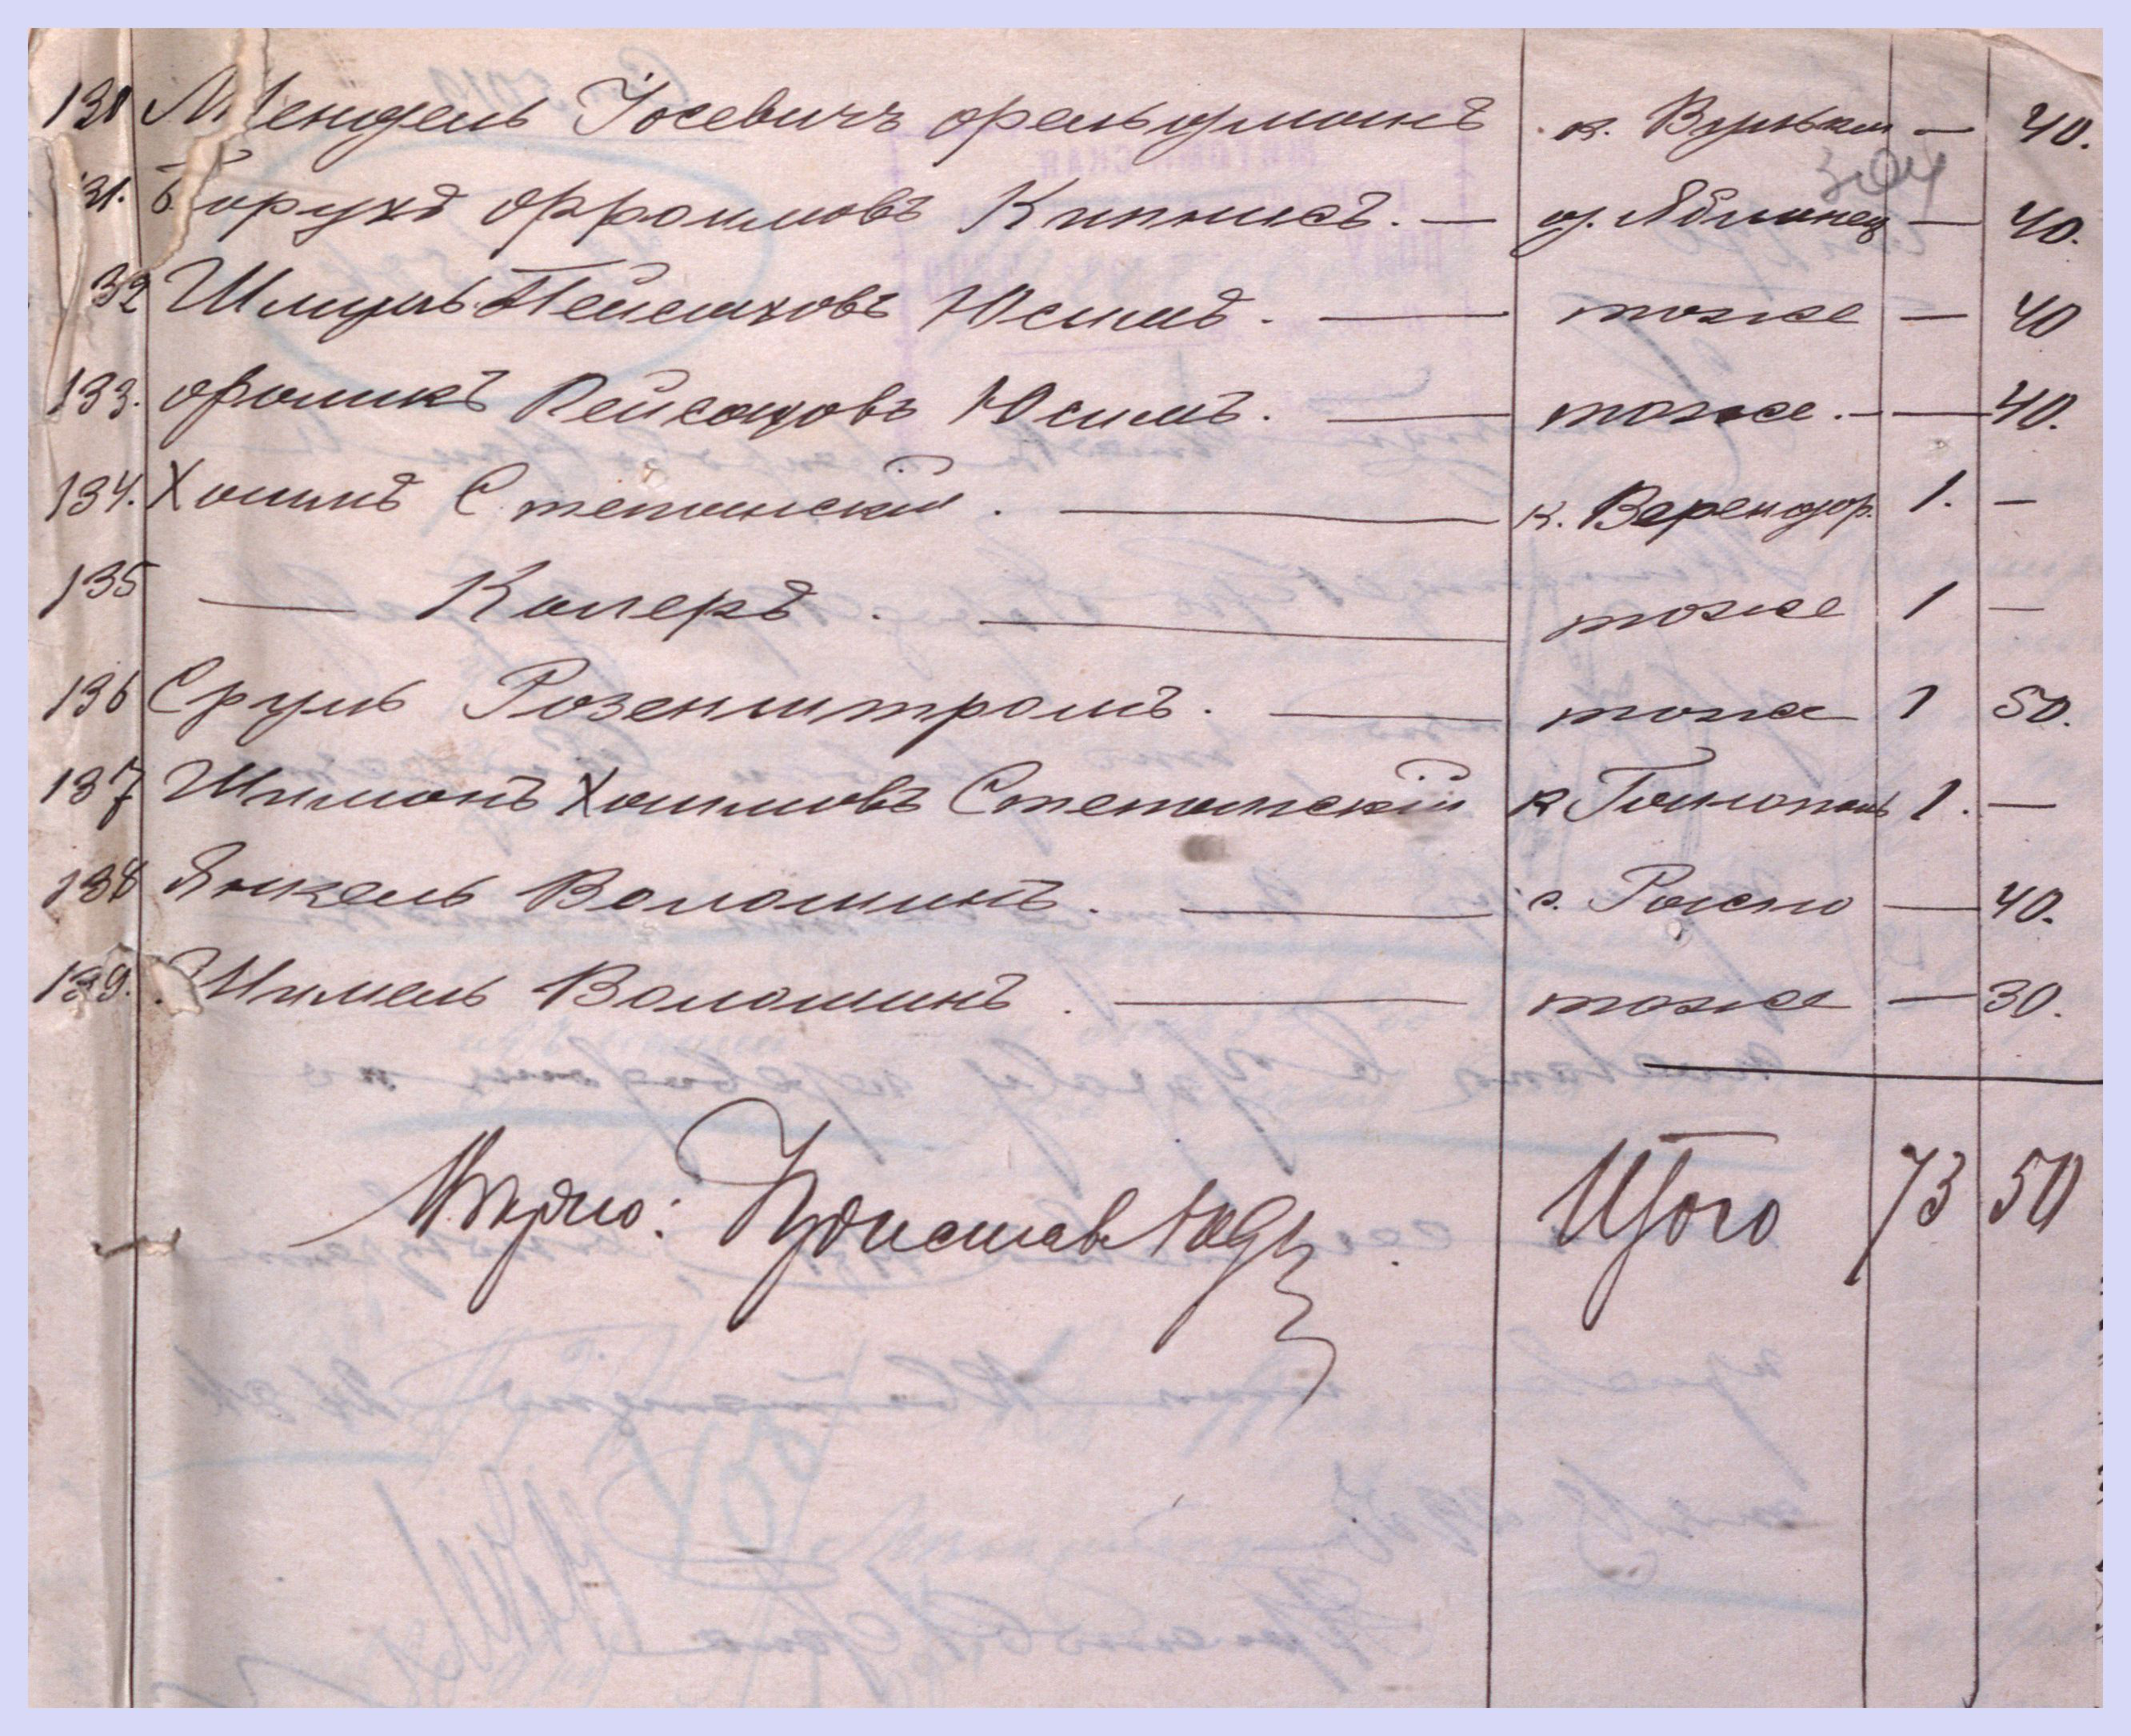 130 Мендель Іосевичъ Фельдманъ к. Вульки — 40.
131. Борухъ Фроимовъ Кипнисъ. — д. Яблонец — 40.
132 Шмуль Пейсаховъ Юсимъ. — тоже — 40
133. Фроликъ Пейсаховъ Юсимъ. — тоже. — 40.
134. Хаимъ Степанскій. — к. Берендор. 1. —
135 — Колеръ. — тоже 1 —
136 Сруль Розенштромъ. — тоже 1 50.
137 Шимонъ Хаимовъ Степанскій к 1. —
138 Янкель Волошинъ. — с. Рясно — 40.
139. Шмель Волошинъ. — тоже — 30.
304
Вѣрно: Приставъ Итого 73 50